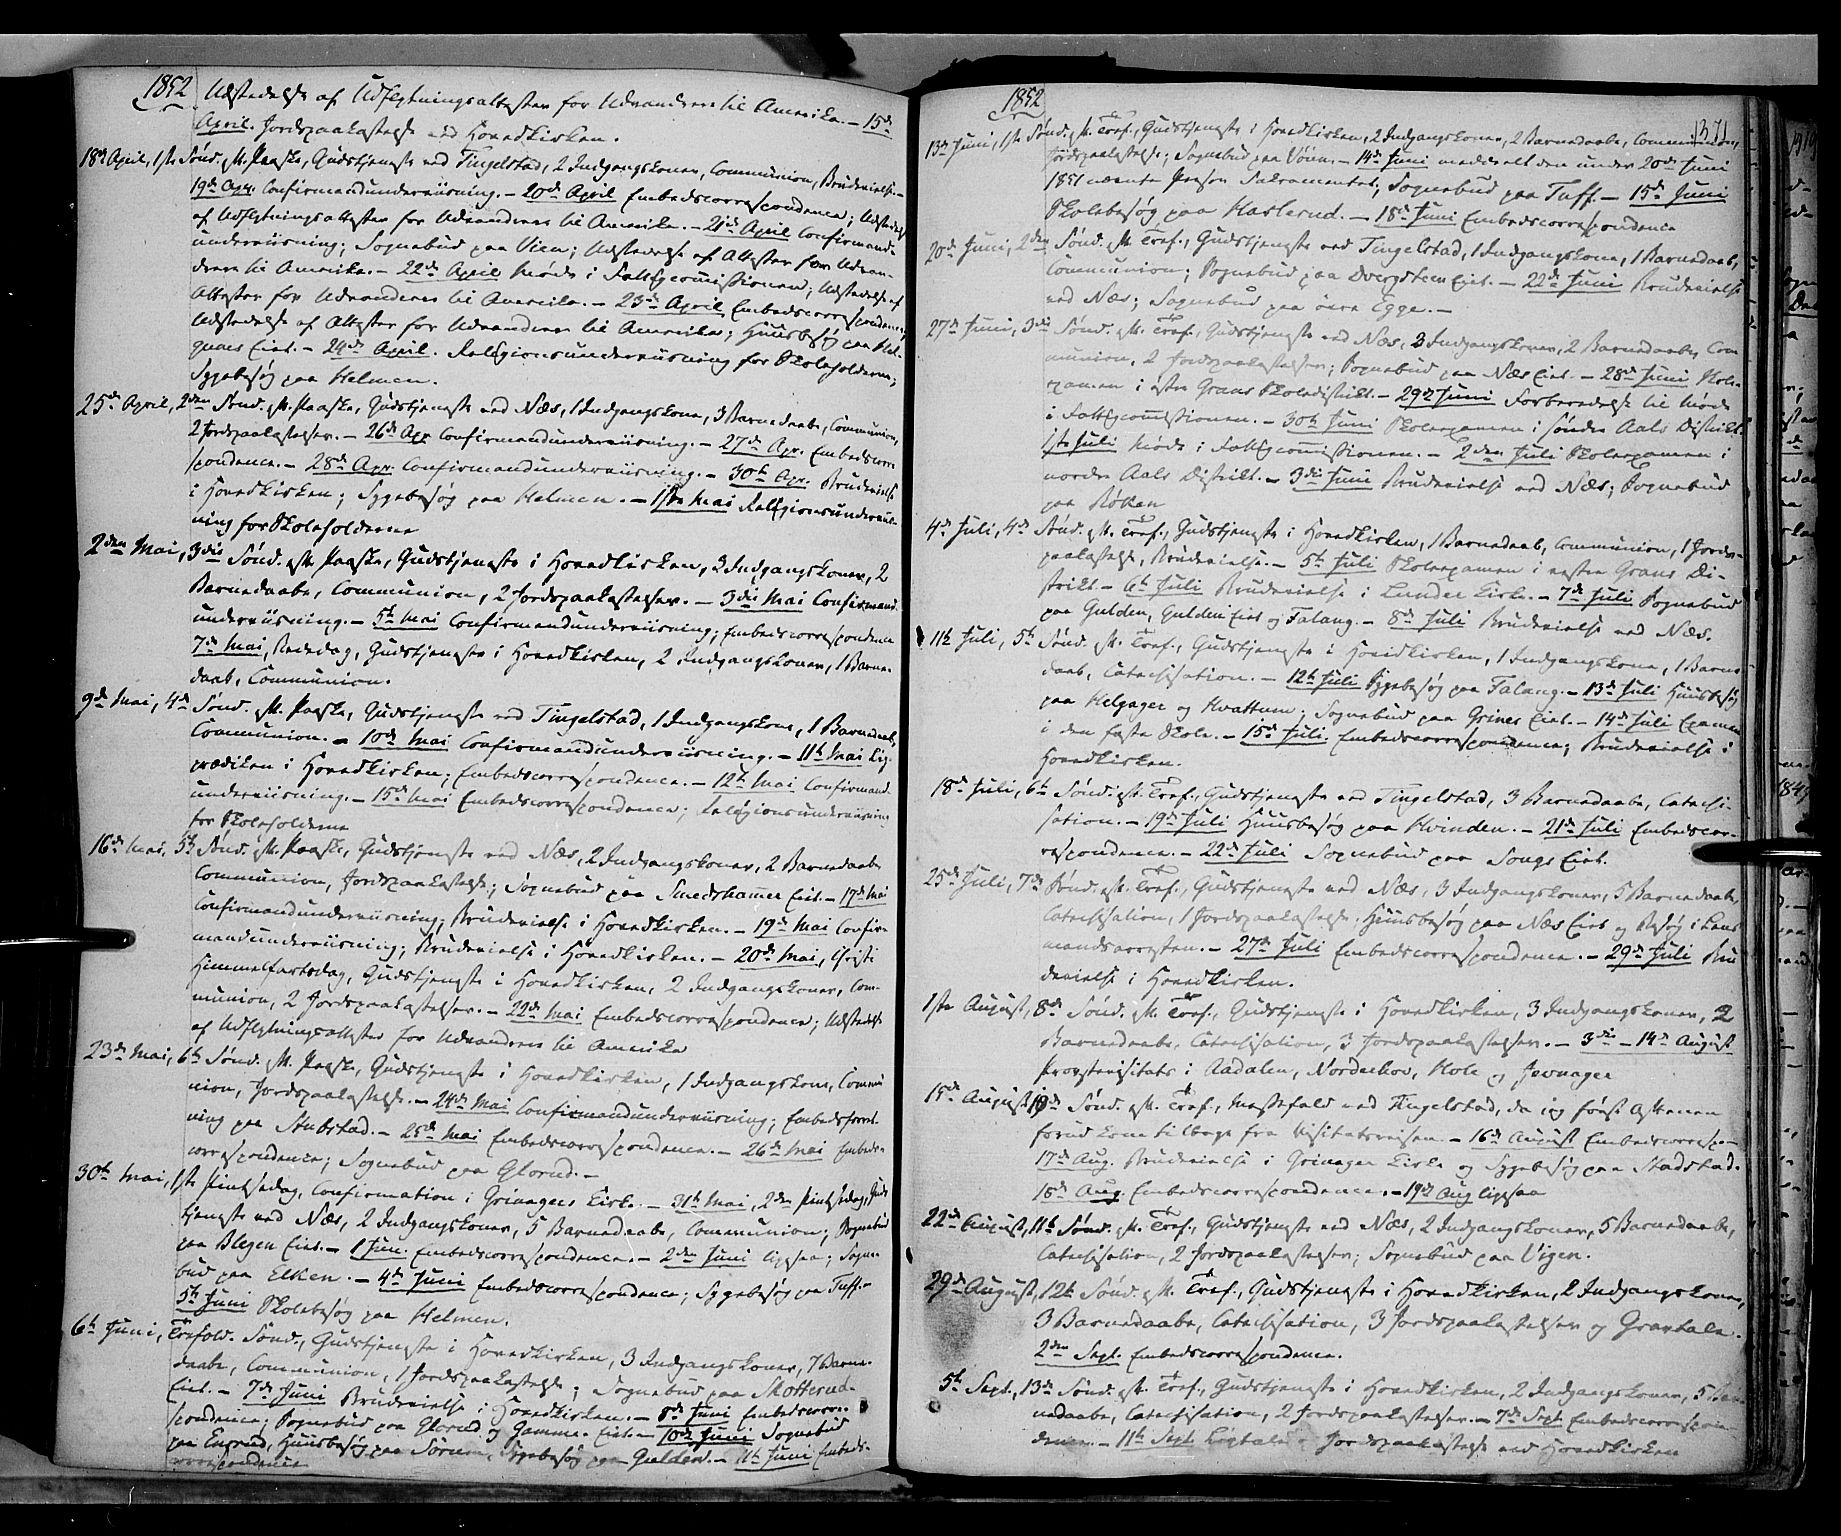 1852
Udstedelse af Udflytningsattester for Udvandrere til Amerika. – 15de
April. Jordpaakastelse ved Hovedkirken.
18de April, 1ste Sønd. eft. Paaske, Gudstjeneste ved Tingelstad, 2 Indgangskoner, Communion, Brudevielse. –
19de Apr. Confirmandunderviisning. – 20de April Embedscorrespondence; Udstedelse
af Udflytningsattester for Udvandrere til Amerika. – 21de April Confirmand-
underviisning; Sognebud paa Vien; Udstedelse af Attester for Udvan-
drere til Amerika. – 22de April Møde i Fattigcommissionen; Udstedelse af
Attester for Udvandrere til Amerika. – 23de April Embedscorrespondence;
Udstedelse af Attester for Udvandrere til Amerika; Huusbesøg paa Hel-
gums Eiet. – 24de April. Religionsunderviisning for Skoleholderne;
Sygebesøg paa Helmen.
25de April, 2den Sønd. eft. Paaske, Gudstjeneste ved Næs, 1 Indgangskone, 3 Barnedaabe, Communion,
2 Jordpaakastelser. – 26de Apr Confirmandunderviisning. – 27de Apr. Embedscorre-
spondence. – 28de Apr. Confirmandunderviisning. – 30te Apr. Brudevielse
i Hovedkirken; Sygebesøg paa Helmen. – 1ste Mai Religionsunderviis-
ning for Skoleholderne
2den Mai, 3die Sønd. eft. Paaske, Gudstjeneste i Hovedkirken, 3 Indgangskoner, 2
Barnedaabe, Communion, 2 Jordpaakastelser. – 3die Mai Confirmand-
underviisning. – 5te Mai Confirmandunderviisning; Embedscorrespondence
7de Mai, Bededag, Gudstjeneste i Hovedkirken, 2 Indgangskoner, 1 Barne-
daab, Communion.
9de Mai, 4de Sønd. eft. Paaske, Gudstjeneste ved Tingelstad, 1 Indgangskone, 1 Barnedaab,
Communion. – 10de Mai Confirmandunderviisning. – 11te Mai Lig-
prædiken i Hovedkirken; Embedscorrespondence. – 12te Mai Confirmand-
underviisning. – 15de Mai Embedscorrespondence; Religionsunderviisning
for Skoleholderne
16de Mai, 5te Sønd. eft. Paaske, Gudstjeneste ved Næs, 2 Indgangskoner, 2 Barnedaabe
Communion, Jordpaakastelse; Sognebud paa Smedshammer Eiet. – 17de Mai
Confirmandunderviisning; Brudevielse i Hovedkirken. – 19de Mai Confir-
mandunderviisning; Brudevielse i Hovedkirken. – 20de Mai, Christi
Himmelfartsdag, Gudstjeneste i Hovedkirken, 2 Indgangskoner, Com-
munion, 2 Jordpaakastelser. – 22de Mai Embedscorrespondence; Udstedelse
af Udflytningsattester for Udvandrere til Amerika
23de Mai, 6te Sønd. eft. Paaske, Gudstjeneste i Hovedkirken, 1 Indgangskone, Commu-
nion, Jordpaakastelse. – 24de Mai Confirmandunderviisning; Embedsforret-
ning paa Stubstad. – 25de Mai Embedscorrespondence. – 26de Mai Embeds-
correspondence; Sognebud paa Glorud. –
30te Mai, 1ste Pintsedag, Confirmation i Grinagers Kirke. – 31te Mai, 2den Pintsedag, Guds-
tjeneste ved Næs, 2 Indgangskoner, 5 Barnedaabe, Communion; Sognebud
paa Blegen Eiet. – 1 Juni Embedscorrespondence. – 2den Juni ligesaa; Sogne-
bud paa Elken. – 4de Juni Embedscorrespondence; Sygebesøg paa Tuff. –
5te Juni Skolebesøg paa Helmen.
6te Juni, Trefold. Sønd., Gudstjeneste i Hovedkirken, 3 Indgangskoner, 7 Barne-
daabe, Communion, 1 Jordpaakastelse; Sognebud paa Skotterud-
Eiet. – 7de Juni Brudevielse i Hovedkirken. – 8de Juni Embedscorre-
spondence; Sognebud paa Glorud og Gamme Eiet. – 10de Juni Sognebud
paa Engrud, Huusbesøg paa Sørum, Sygebesøg paa Gulden. – 11te Juni Embeds-
correspondence
1852
1371
13de Juni, 1ste Sønd. eft. Tref., Gudstjeneste i Hovedkirken, 2 Indgangskoner, 2 Barnedaabe, Communion,
Jordpaakastelse; Sognebud paa Vøien. – 14de Juni meddeelt den under 20de Juni
1851 nævnte Person Sakramentet; Sognebud paa Tuff. – 15de Juni
Skolebesøg paa Haslerud. – 18de Juni Embedscorrespondence
20de Juni, 2den Sønd. eft. Tref., Gudstjeneste ved Tingelstad, 1 Indgangskone, 1 Barnedaab,
Communion; Sognebud paa Dvergsteen Eiet. – 22de Juni Brudevielse
ved Næs; Sognebud paa øvre Egge. –
27de Juni, 3die Sønd. eft. Tref., Gudstjeneste ved Næs, 3 Indgangskoner, 2 Barnedaabe, Com-
munion, 2 Jordpaakastelser; Sognebud paa Næs Eiet. – 28de Juni Skole-
examen i østre Grans Skoledistrikt. – 29de Juni Forberedelse til Møde
i Fattigcommissionen. – 30te Juni Skoleexamen i søndre Aals Distrikt.
1ste Juli Møde i Fattigcommissionen. – 2den Juli Skoleexamen i
nordre Aals Distrikt. – 3die Juni Brudevielse ved Næs; Sognebud
paa Røken
4de Juli, 4de Sønd. eft. Tref., Gudstjeneste i Hovedkirken, 1 Barnedaab, Communion, 1 Jords-
paakastelse, Brudevielse. – 5te Juli Skoleexamen i vestre Grans Di-
strikt – 6te Juli Brudevielse i Lunder Kirke. – 7de Juli Sognebud
paa Gulden, Gulden Eiet og Falang. – 8de Juli Brudevielse ved Næs.
11te Juli, 5te Sønd. eft. Tref., Gudstjeneste i Hovedkirken, 1 Indgangskone, 1 Barne-
daab, Catechisation. – 12te Juli Sygebesøg paa Falang. – 13de Juli Huusbesøg
paa Helgager og Hvattum; Sognebud paa Grines Eiet. – 14de Juli Examen
i den faste Skole. – 15de Juli Embedscorrespondence; Brudevielse i
Hovedkirken.
18de Juli, 6te Sønd. eft. Tref., Gudstjeneste ved Tingelstad, 3 Barnedaabe, Catechi-
sation. – 19de Juli Huusbesøg paa Hvinden. – 21de Juli Embedscor-
respondence. – 22de Juli Sognebud paa Songs Eiet.
25de Juli, 7de Sønd. eft. Tref., Gudstjeneste ved Næs, 3 Indgangskoner, 5 Barnedaabe,
Catechisation, 1 Jordpaakastelse, Huusbesøg paa Næs Eiet og Besøg i Lens-
mandsarresten. – 27de Juli Embedscorrespondence. – 29de Juli Bru-
devielse i Hovedkirken.
1ste August, 8de Sønd. eft. Tref., Gudstjeneste i Hovedkirken, 3 Indgangskoner, 2
Barnedaabe, Catechisation, 3 Jordpaakastelser. – 3die – 14de August
Provstevisitats i Aadalen, Norderhov, Hole og Jevnager
15de August, 10de Sønd. eft. Tref., Messefald ved Tingelstad, da jeg først Aftenen
forud kom tilbage fra Visitatsreisen. – 16de August Embedscorrespo-
17de Aug. Brudevielse i Grinager Kirke og Sygebesøg paa Nadstad.
18de Aug Embedscorrespondence. – 19de Aug ligesaa
22de August, 11te Sønd. eft. Tref., Gudstjeneste ved Næs, 2 Indgangskoner, 5 Barnedaabe,
Catechisation, 2 Jordpaakastelser; Sognebud paa Vigen.
29de August, 12te Sønd. eft. Tref., Gudstjeneste i Hovedkirken, 2 Indgangskoner,
3 Barnedaabe, Catechisation, 3 Jordpaakastelser og Gravtale.
2den Sept. Embedscorrespondence.
5te Sept., 13de Sønd. eft. Tref., Gudstjeneste i Hovedkirken, 2 Indgangskoner, 5 Bar-
nedaabe, Catechisation, 2 Jordpaakastelser. – 7de Sept Embedscorrespon-
dence. – 11te Sept. Ligtale og Jordpaakastelse ved Hovedkirken